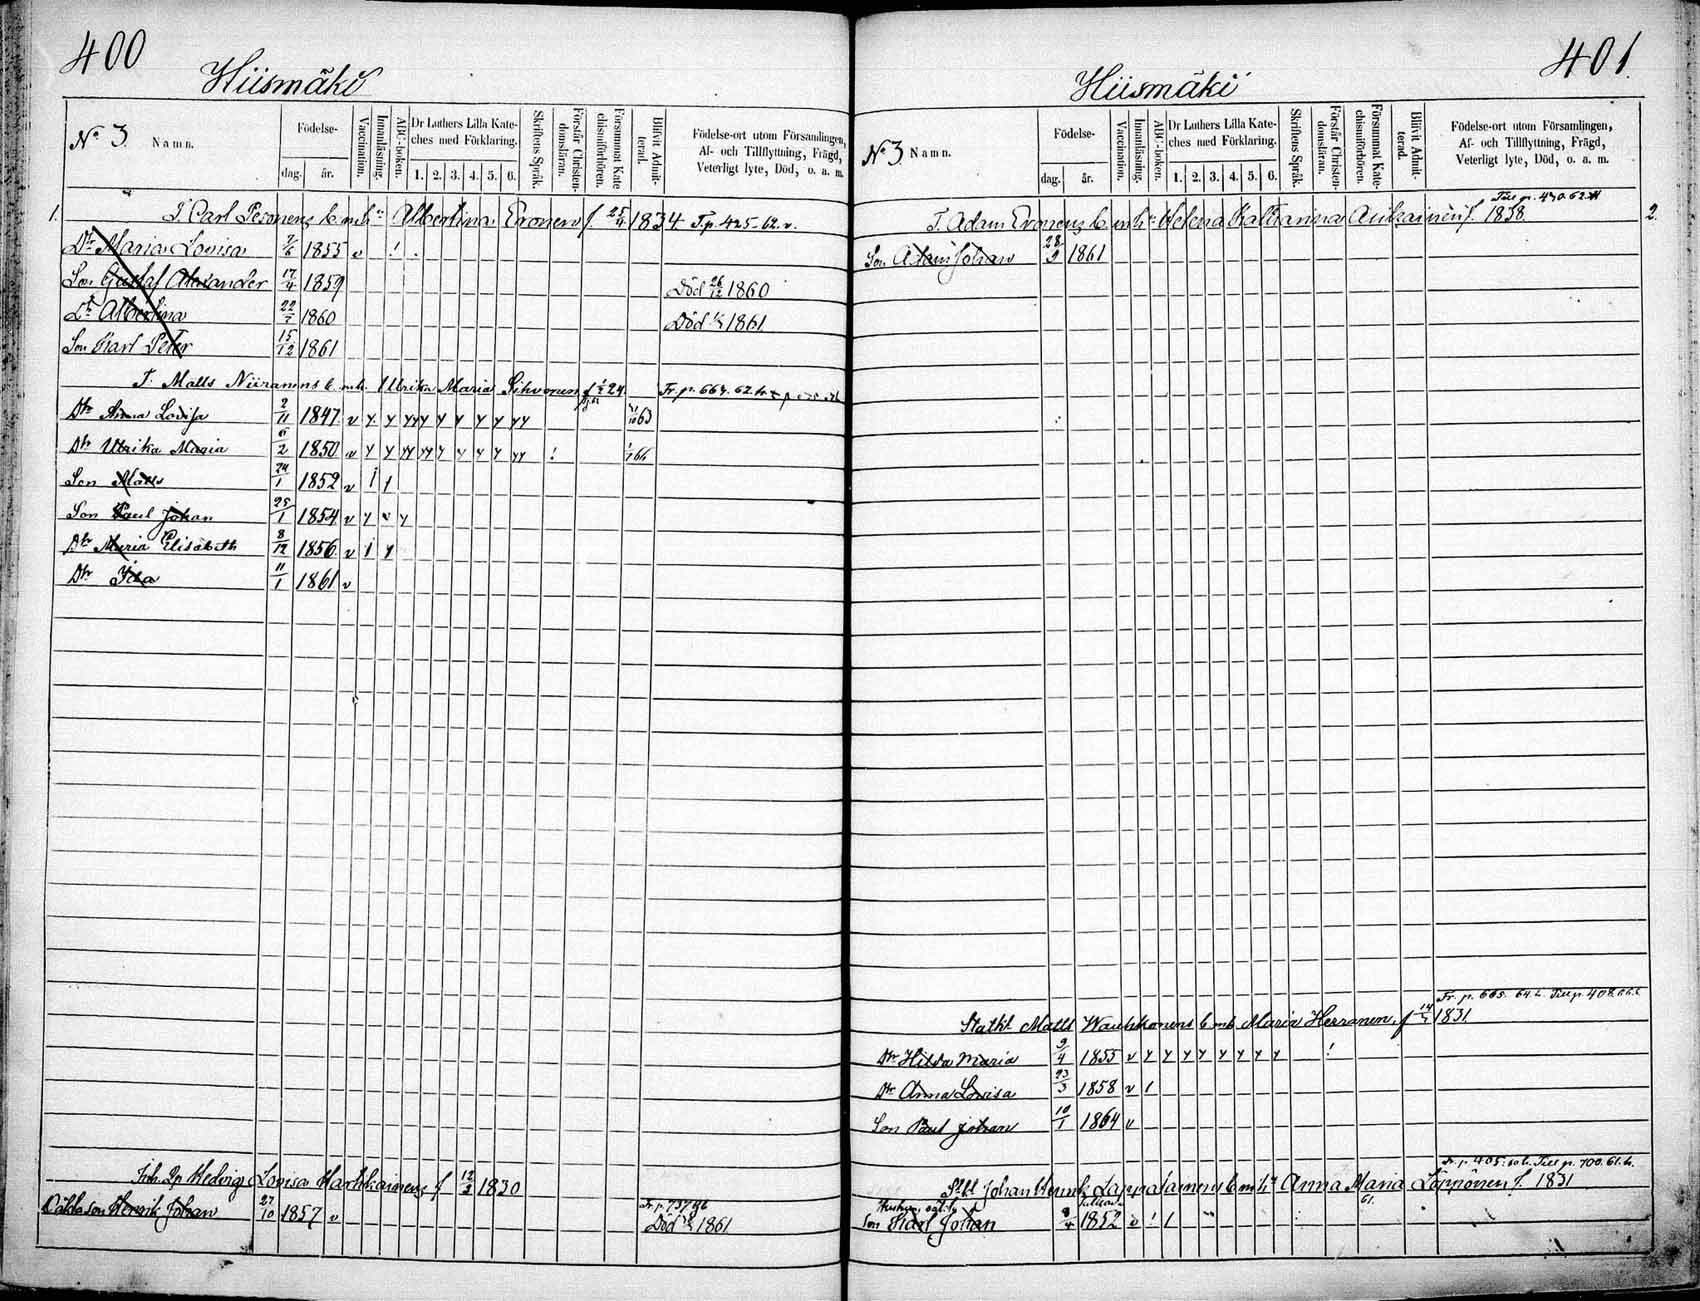 400
Hiismäki
No 3. Namn.
Födelse-
dag. år.
Vaccination.
Innanläsning.
ABC-boken.
Dr Luthers Lilla Kate-
ches med Förklaring.
1. 2. 3. 4. 5. 6.
Skriftens Språk.
Förstår Christen-
domsläran.
Försummat Kate
chismiförhören.
Blifvit Admit-
terad.
Födelse-ort utom Församlingen,
Af- och Tillflyttning, Frägd,
Veterligt lyte, Död, o. a. m.
1. T. Carl Pesonens b. m. h. Albertina Eronen f. 25/4 1834. F. p. 425-62.
Dr Maria Lovisa 9/6 1855 v !
Son Gustaf Alexander 17/4 1859 Död 26/12 1860
Dr Albertina 22/7 1860 Död 1861
Son Karl Peter 15/12 1861
T. Matts Niiranens b. m. h. Ulrika Maria Sihvonen f 24. Fr. p. 664. 62.
Dtr Anna Lovisa 2/11 1847. v y y y yy y y y y yy 63
Dtr Ulrika Maria 6/2 1850 v y y yy yy y y y y yy ! 66
Son Matts 24/1 1852 v
Son Paul Johan 25/1 1854 v y v y
Dtr Maria Elisabeth 8/12 1856 v
Dtr Ida 11/1 1861 v
Inh. Hedvig Lovisa Hartikainens f 12/2 1830
Oäkta son Henrik Johan 27/10 1857 v Fr. p. 737
Död 1861
401.
Hiismäki
No 3 Namn.
Födelse-
dag. år.
Vaccination.
Innanläsning.
ABC-boken.
Dr Luthers Lilla Kate-
ches med Förklaring.
1. 2. 3. 4. 5. 6.
Skriftens Språk.
Förstår Christen-
domsläran.
Försummat Kate-
chismiförhören.
Blifvit Admit-
terad.
Födelse-ort utom Församlingen,
Af- och Tillflyttning, Frägd,
Veterligt lyte, Död, o. a. m.
Till p. 430. 62.
T. Adam Eronens b. m. h. Helena Katharina Autkainen f. 1838. 2.
Son Adam Johan 28/9 1861
Fr. p. 605. 64. Till p. 408.
Statkl Matts Wauhkonens b. m. h. Maria Herranen, f 14/7 1831.
Dtr Hilda Maria 9/4 1855 v y y y y y y y y !
Dtr Anna Lovisa 23/3 1858 v
Son Paul Johan 10/1 1864 v
Fr. p. 405: Till p. 700. 61.
Johan Henrik Lappalainens b. m. h. Anna Maria Löppönen f. 1831
son Karl Johan 1852 v